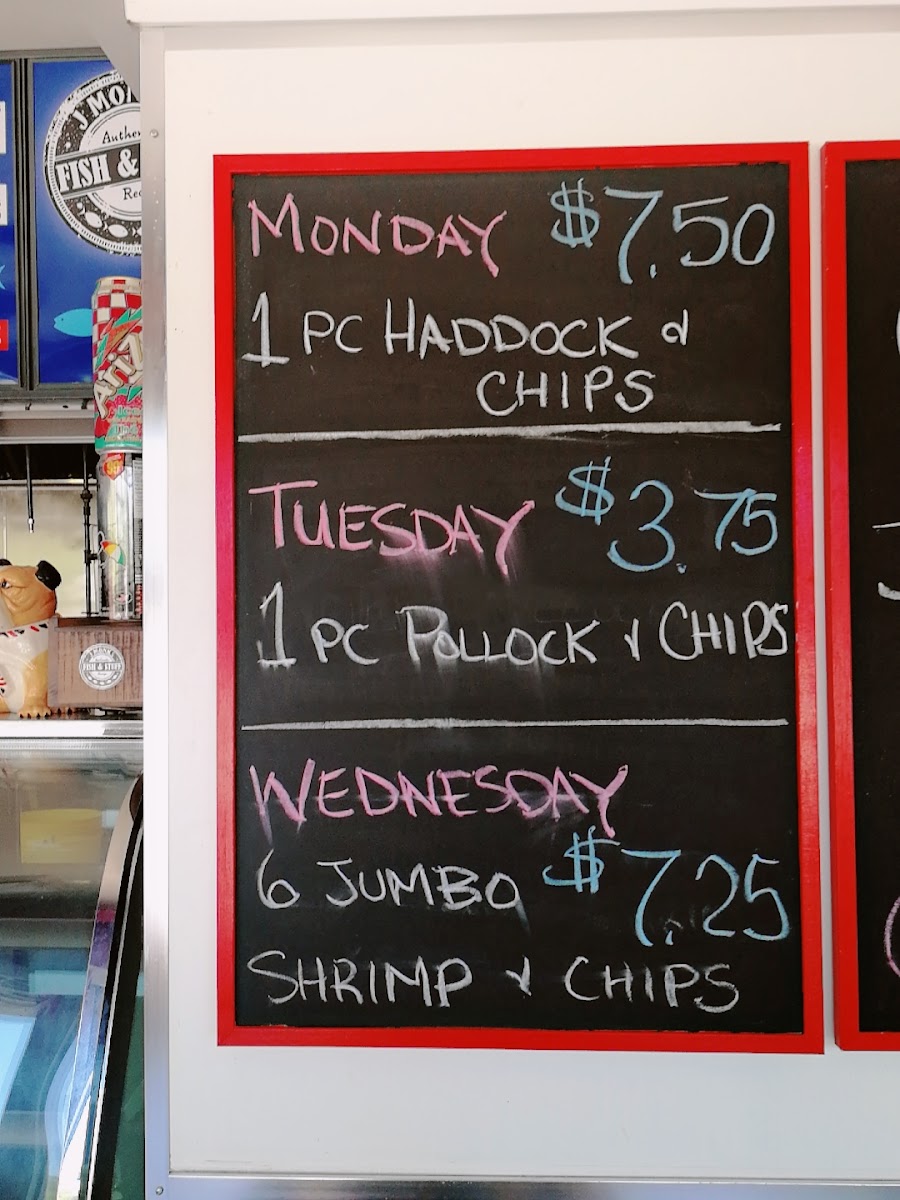 MONDAY $7.50
1 PC HADDOCK &
CHIPS
TUESDAY $3.75
1 PC POLLOCK & CHIPS
WEDNESDAY
6 JUMBO $7.25
SHRIMP & CHIPS
FISH &
AriZ
FISH & STUFF